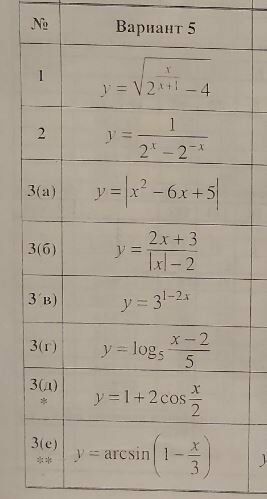 № Вариант 5
1 y = √(2^(x/(x+1)) − 4)
2 y = 1/(2^x − 2^(−x))
3(а) y = |x² − 6x + 5|
3(б) y = (2x + 3)/(|x| − 2)
3(в) y = 3^(1−2x)
3(г) y = log₅ (x − 2)/5
3(д) * y = 1 + 2cos x/2
3(е) ** y = arcsin(1 − x/3) y